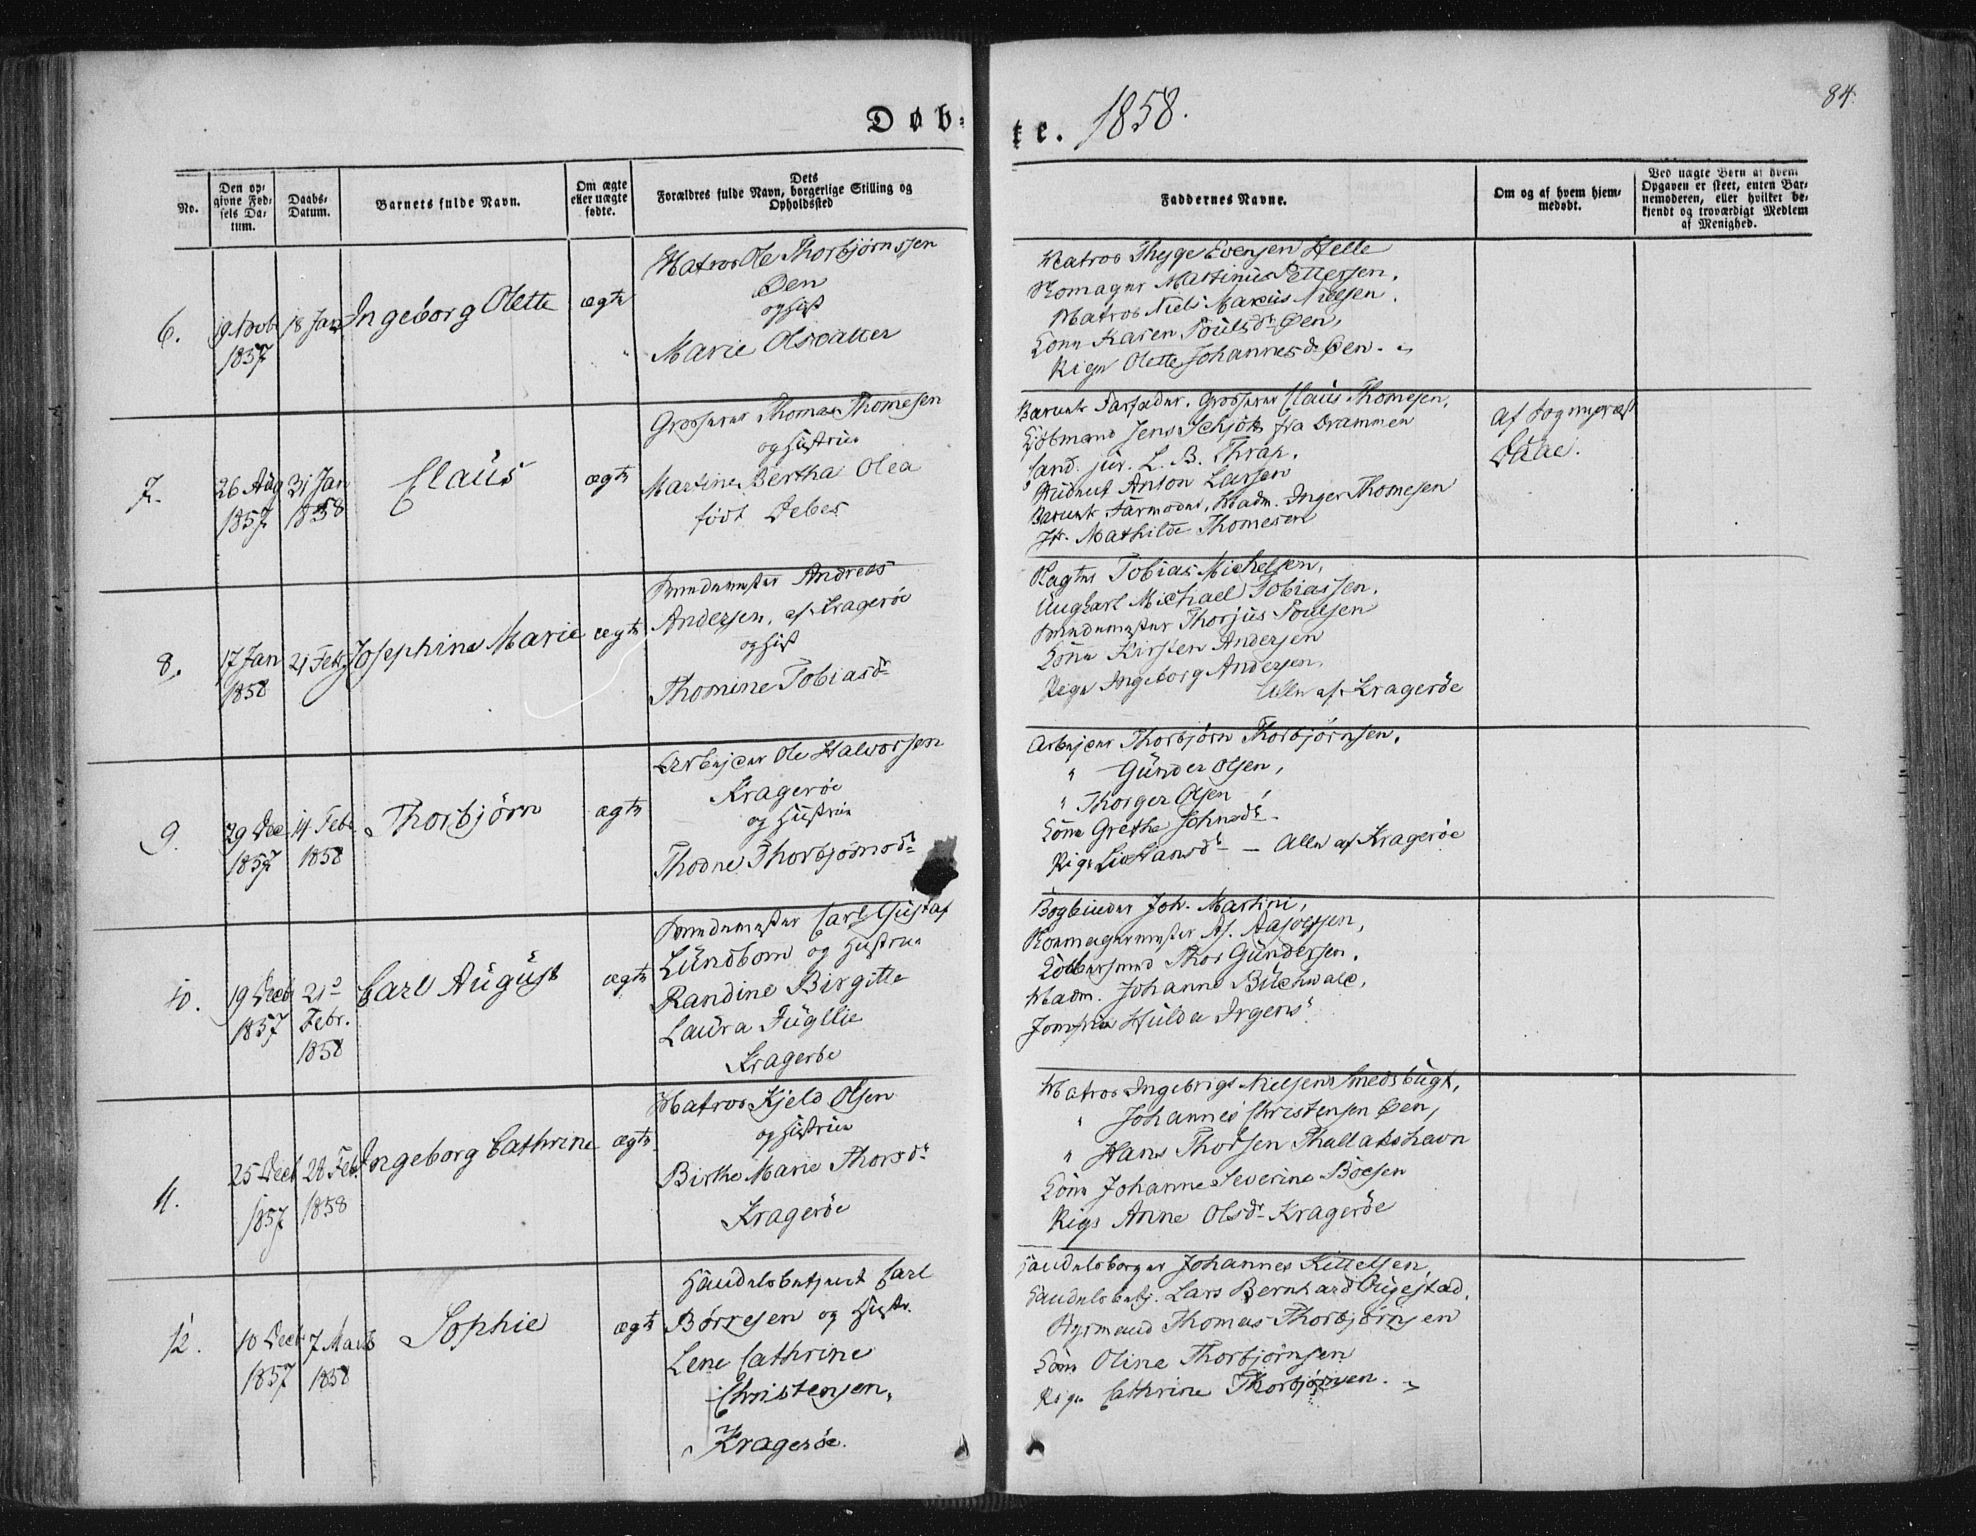 Døb-
te. 1858.
84.
No.
Den op-
givne Fød-
sels Da-
tum.
Daabs-
Datum.
Barnets fulde Navn.
Om ægte
eller uægte
fødte.
Dets
Forældres fulde Navn, borgerlige Stilling og
Opholdssted
Faddernes Navne.
Om og af hvem hjem-
medøbt.
Ved uægte Børn af hvem
Opgaven er skeet, enten Bar-
nemoderen, eller hvilket be-
kjendt og troværdigt Medlem
af Menighed.
6.
1857
18 Jan
Ingeborg Olette
ægte
Matros Ole Thorbjørnssen
Øen
og Hust
Marie Olsdatter
Matros Thyge Evensen Helle
Martinus Pettersen.
Matros Niels Marius Nielsen.
Kone Karen Poulsdr Øen,
Pige Olette Johannesdr Øen.
7.
26 Aug
1857
31 Jan
1858
Claus
ægte
Grosserer Thomas Thomesen
og Hustrue
Martine Bertha Olea
født Debes
Barnets Farfader, Grosserer Claus Thomesen,
Kjøbmand Jens Schjøtt fra Drammen
Cand. jur. L. B. Thrap.
Student Anton Larsen
Barnets Farmoder, Madm. Inger Thomesen
Jfr. Mathilde Thomesen
af Sognepræst
Daae.
8.
17 Jan
1858
21 Febr
Josephine Marie
ægte
Andreas
Andersen, af Kragerøe
og Hust
Thomine Tobiasdr
Tobias Michelsen,
Ungkarl Michael Tobiassen,
Thorjus Poulsen
Kone Kirsten Andersen
Pige Ingeborg Andersen,
Alle af Kragerøe
9.
29 Dec
1857
14 Febr
1858
Thorbjørn
ægte
Arbejder Ole Halvorsen
Kragerøe
og Hustrue
Thorbjørnsdr
Arbejder Thorbjørn Thorbjørnsen,
" Gunder Olsen,
" Thorger Olsen,
Kone Grethe Johnsdr
Pige Lie Hansdr — Alle af Kragerøe
10.
19 Decb
1857
21de
Febr.
1858
Carl August
ægte
Carl Gustaf
Lundbom og Hustrue
Randine Birgitte
Laura Fuglie
Kragerøe
Bogbinder Joh. Martini,
Thor Gundersen.
Madm. Johanne Buchwale,
Jomfru Hulda Irgens
11.
25 Decb
1857
28 Feb
1858
Ingeborg Cathrine
ægte
Matros Kjeld Olsen
og Hustrue
Birthe Marie Thorsdr
Kragerøe
Matros Ingebrigt Nielsen Smedsbugt,
" Johannes Christensen Øen,
" Hans Thorsen Thallakshavn
Kone Johanne Severine Boesen
Pige Anne Olsdr Kragerøe
12.
10 Decb
1857
7 Marts
1858
Sophie
ægte
Handelsbetjent Carl
Børresen og Hustr.
Lene Cathrine
Christensen,
Kragerøe.
Handelsborger Johannes Kittelsen,
Handelsbetj. Lars Bernhard Ougestad,
Styrmand Thomas Thorbjørnsen
Kone Oline Thorbjørnsen
Pige Cathrine Thorbjørnsen.